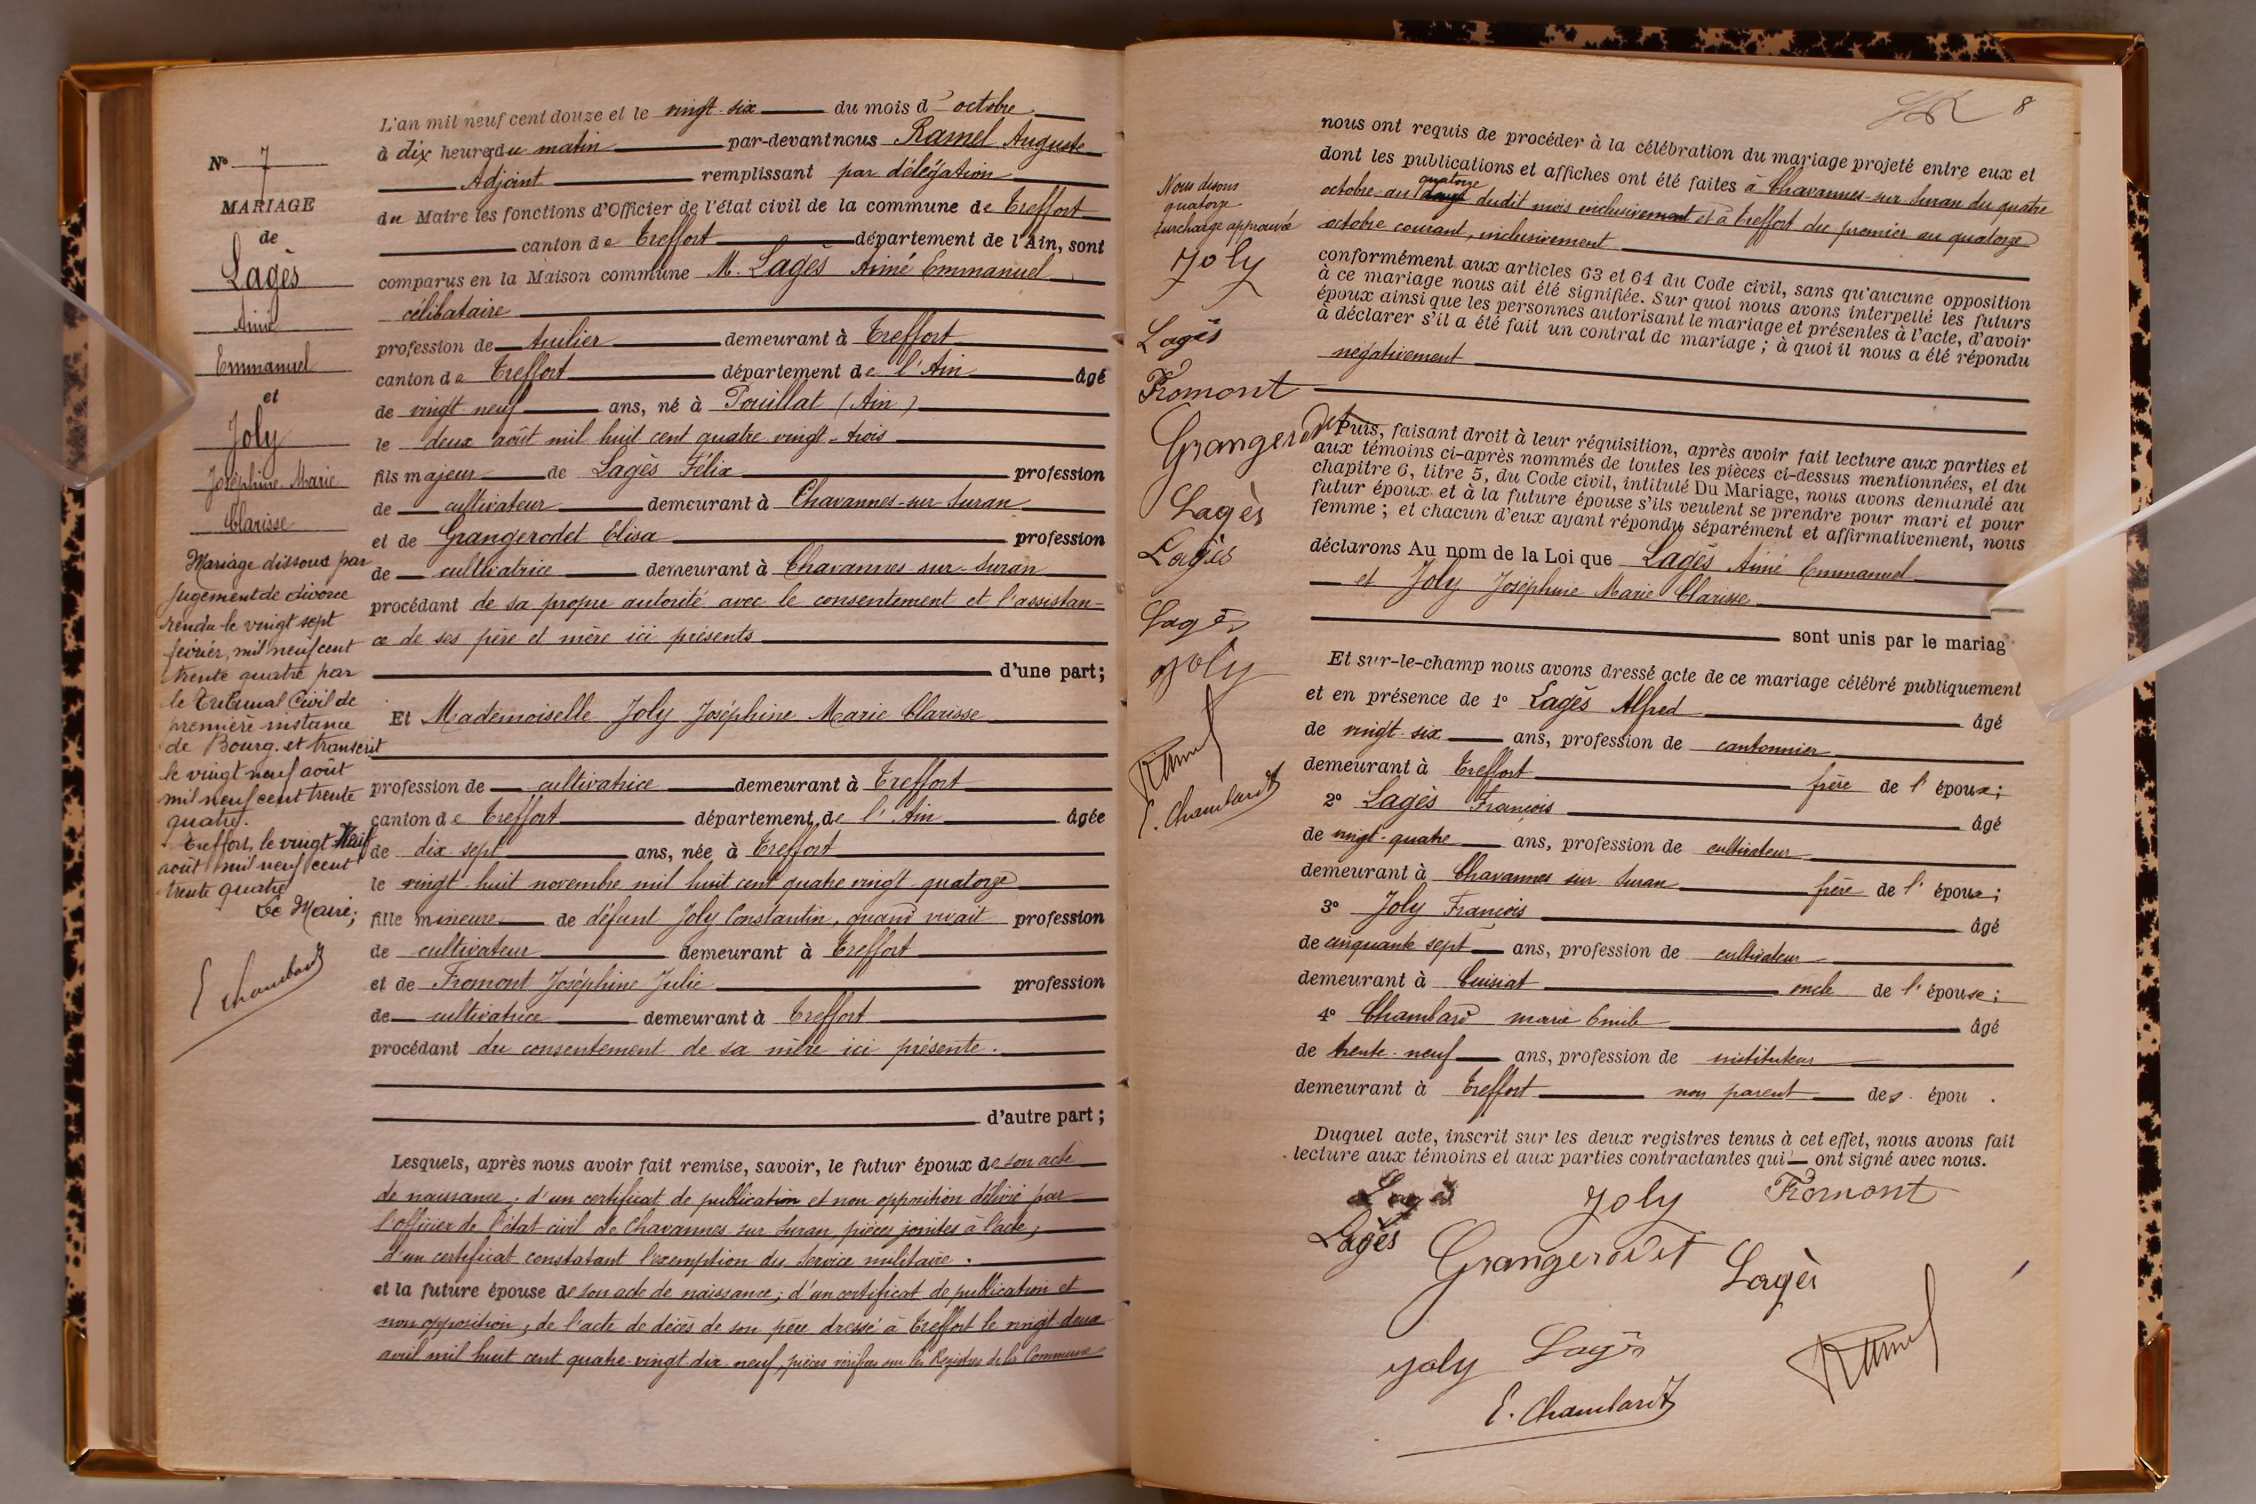 N° 7
MARIAGE
de
Lagès
Aimé
Emmanuel
et
Joly
Joséphine Marie
Clarisse
Mariage dissous par
jugement de divorce
rendu le vingt sept
février, mil neuf cent
trente quatre par
le Tribunal Civil de
première instance
de Bourg. et transcrit
le vingt neuf août
mil neuf cent trente
quatre.
Treffort, le vingt
août mil neuf cent
trente quatre
Le Maire;
E Chambard
L'an mil neuf cent douze et le vingt-six du mois d' octobre.
à dix heures du matin par-devant nous Ramel Auguste
Adjoint remplissant par délégation
du Maire les fonctions d'Officier de l'état civil de la commune de Treffort
canton de Treffort département de l'Ain, sont
comparus en la Maison commune M. Lagès Aimé Emmanuel
célibataire
profession de tuilier demeurant à Treffort
canton de Treffort département de l'Ain âgé
de vingt-neuf ans, né à Pouillat (Ain)
le deux août mil huit cent quatre vingt-trois
fils majeur de Lagès Félix profession
de cultivateur demeurant à Chavannes-sur-Suran
et de Grangerodet Elisa profession
de cultivatrice demeurant à Chavannes sur-Suran
procédant de sa propre autorité avec le consentement et l'assistan-
ce de ses père et mère ici présents
d'une part;
Et Mademoiselle Joly Joséphine Marie Clarisse
profession de cultivatrice demeurant à Treffort
canton de Treffort département de l'Ain âgée
de dix-sept ans, née à Treffort
le vingt-huit novembre mil huit cent quatre vingt-quatorze
fille mineure de défunt Joly Constantin, quand vivait profession
de cultivateur demeurant à Treffort
et de Fromont Joséphine Julie profession
de cultivatrice demeurant à Treffort
procédant du consentement de sa mère ici présente.
d'autre part;
Lesquels, après nous avoir fait remise, savoir, le futur époux de son acte
de naissance; d'un certificat de publication et non opposition délivré par
l'officier de l'état-civil de Chavannes sur Suran, pièces jointes à l'acte;
d'un certificat constatant l'exemption du Service militaire.
et la future épouse de son acte de naissance; d'un certificat de publication et
non opposition; de l'acte de décès de son père dressé à Treffort le vingt-deux
avril mil huit cent quatre-vingt-dix neuf, pièces vérifiées sur les Registres de la Commune
8
nous ont requis de procéder à la célébration du mariage projeté entre eux et
dont les publications et affiches ont été faites à Chavannes-sur Suran du quatre
quatorze
octobre au dudit mois inclusivement et à Treffort du premier au quatorze
octobre courant, inclusivement
Nous disons
quatorze
surcharge approuvée
Joly
Lagès
Fromont
Grangerodet
Lagès
Lagès
Lagès
Joly
Ramel
E. Chambard
conformément aux articles 63 et 64 du Code civil, sans qu'aucune opposition
à ce mariage nous ait été signifiée. Sur quoi nous avons interpellé les futurs
époux ainsi que les personnes autorisant le mariage et présentes à l'acte, d'avoir
à déclarer s'il a été fait un contrat de mariage; à quoi il nous a été répondu
négativement
Puis, faisant droit à leur réquisition, après avoir fait lecture aux parties et
aux témoins ci-après nommés de toutes les pièces ci-dessus mentionnées, et du
chapitre 6, titre 5, du Code civil, intitulé Du Mariage, nous avons demandé au
futur époux et à la future épouse s'ils veulent se prendre pour mari et pour
femme; et chacun d'eux ayant répondu séparément et affirmativement, nous
déclarons Au nom de la Loi que Lagès Aimé Emmanuel
et Joly Joséphine Marie Clarisse
sont unis par le mariag
Et sur-le-champ nous avons dressé acte de ce mariage célébré publiquement
et en présence de 1° Lagès Alfred âgé
de vingt-six ans, profession de cantonnier
demeurant à Treffort frère de l'époux;
2° Lagès François âgé
de vingt-quatre ans, profession de cultivateur
demeurant à Chavannes sur Suran frère de l'époux;
3° Joly François âgé
de cinquante sept ans, profession de cultivateur
demeurant à Cuisiat oncle de l'épouse;
4° Chambard Marie Emile âgé
de trente-neuf ans, profession de instituteur
demeurant à Treffort non parent des épou .
Duquel acte, inscrit sur les deux registres tenus à cet effet, nous avons fait
lecture aux témoins et aux parties contractantes qui ont signé avec nous.
Lagès Joly Fromont
Lagès Grangerodet Lagès
Joly Lagès Ramel
E. Chambard